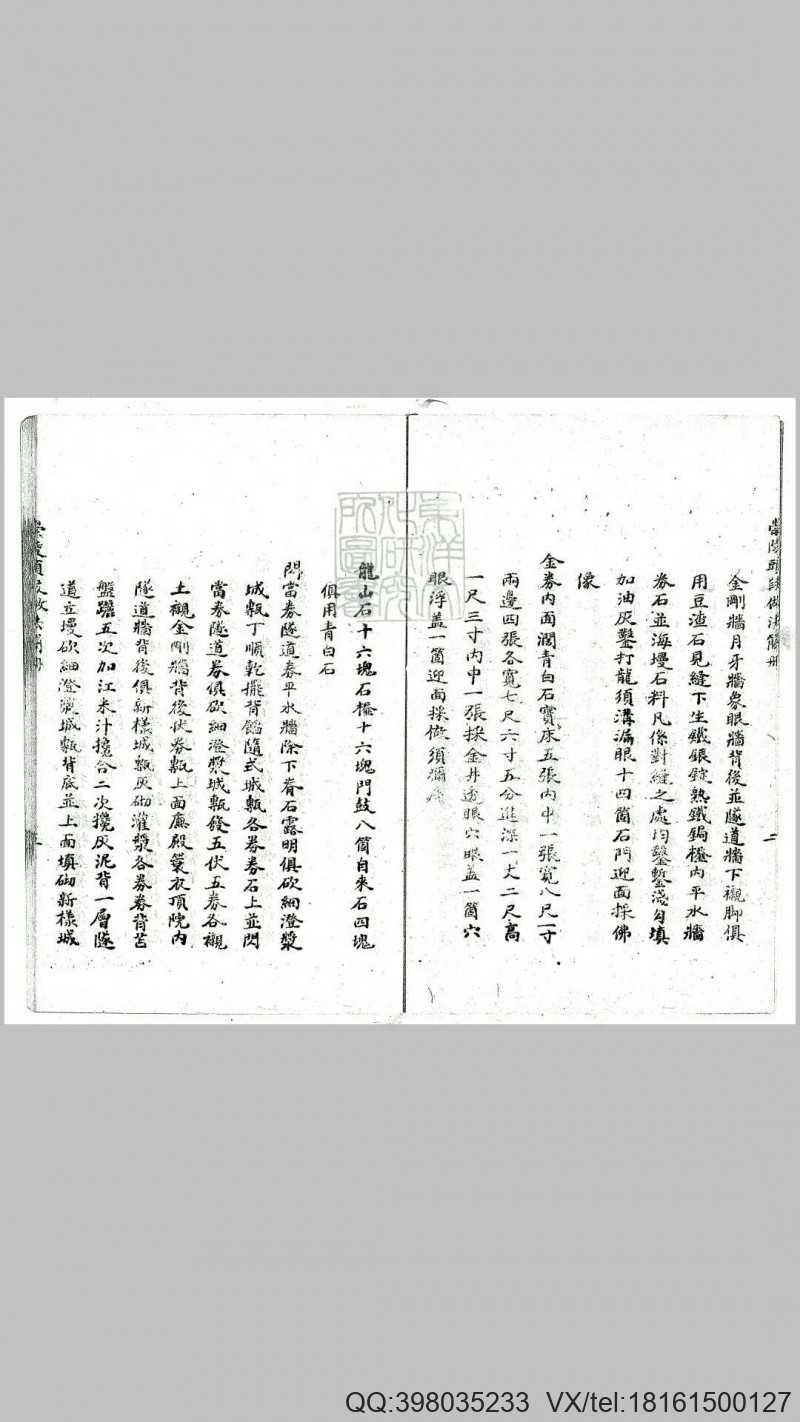 金剛牆月牙牆象眼牆背後並隧道牆下襯脚俱
用豆渣石見縫下生鐵銀錠熟鐵鋦櫼內平水牆
券石並海墁石料凡係對縫之處均鑿鏨淺勾填
加油灰鑿打龍須溝漏眼十四箇石門迎面採佛
像
金券內面濶青白石寶床五張內中一張寬八尺一寸
兩邊四張各寬七尺六寸五分進深一丈二尺高
一尺三寸內中一張採金井透眼穴眼蓋一箇穴
眼浮蓋一箇迎面採做須彌座
龍山石十六塊石櫼十六塊門鼓八箇自來石四塊
俱用青白石
閃當券隧道春平水牆除下脊石露明俱砍細澄漿
城甎丁順乾擺背餡隨式城甎各券券石上並閃
當券隧道券俱砍細澄漿城甎發五伏五券各襯
土襯金剛牆背後伏券甎上面廡殿簑衣頂院內
隧道牆背後俱新樣城甎灰砌灌漿各券券背苫
盤躧五次加江米汁攙合二次攙灰泥背一層隧
道立墁砍細澄漿城甎背底並上面填砌新樣城
QQ:398035233 VX/tel:18161500127